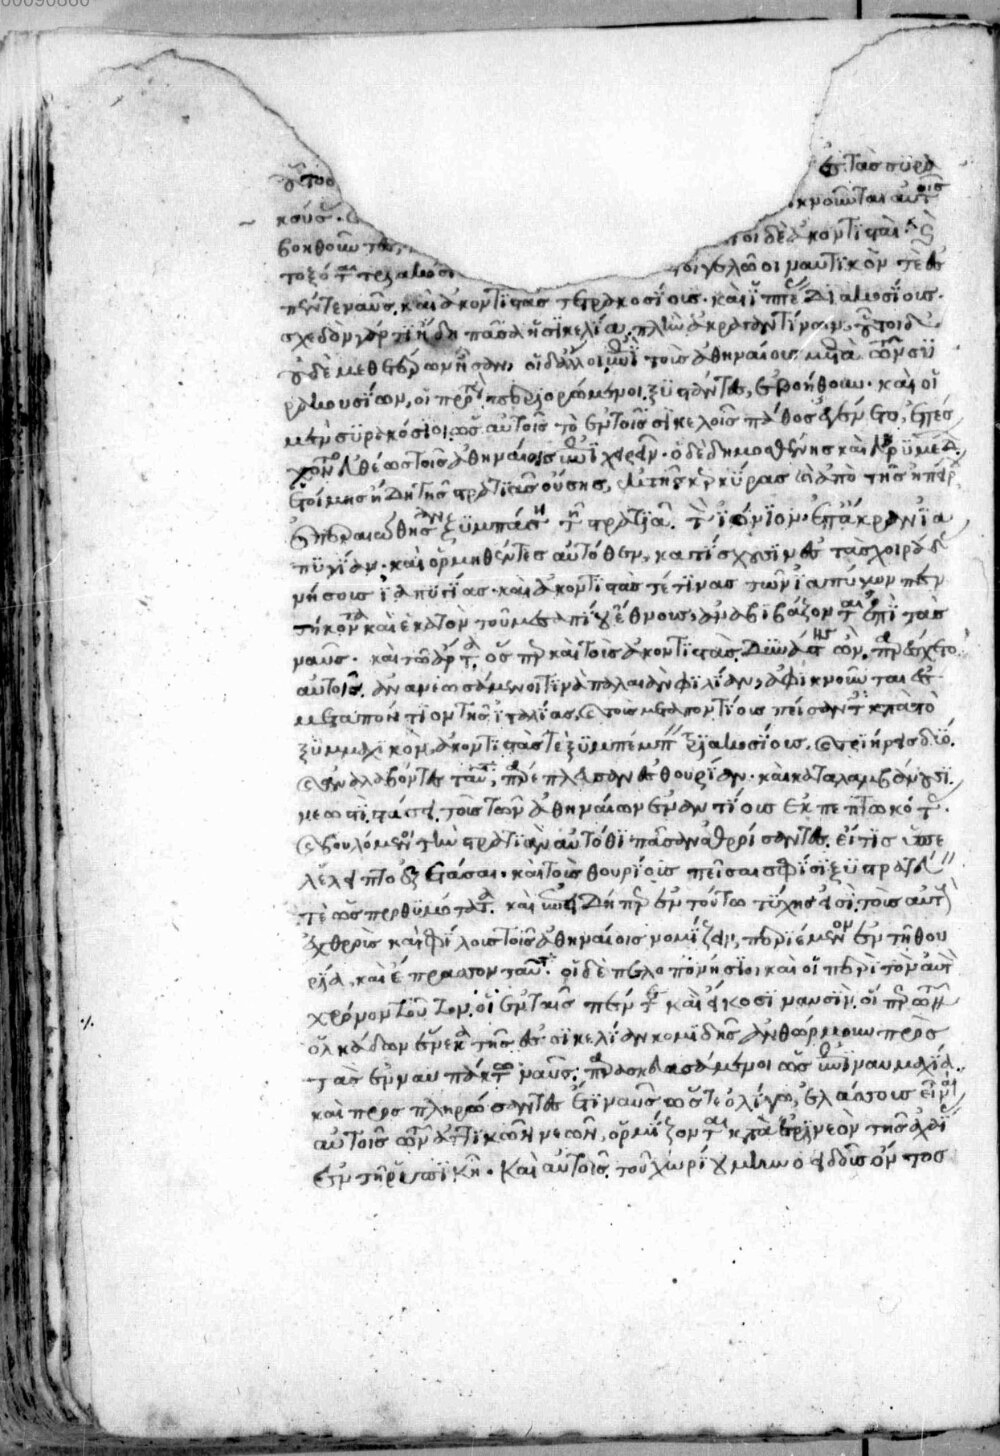 οὗτοι ἐς τὰς συρα
κούσ κνοῦνται αὐτοῖς
βοηθοῦντες, οι δὲ ἀκοντισταὶ· κ
τοξόται τριακόσι οἱ γελῶοι ναυτικὸν τὲ ἐς
πέντε ναῦς. καὶ ἀκοντιστὰς τετρακοσίους· καὶ ἱππέας διακοσίους·
σχεδὸν γάρ τι ἤδη πᾶσα ἡ σικελία, πλὴν ἀκραγαντίνων, οὗτοι δ'
οὐδὲ μεθ' ἑτέρων ἦσαν, οἱ δ' ἄλλοι ἐπὶ τοὺς ἀθηναίους μετὰ τῶν συ
ρακουσίων, οἱ πρότερον περιορώμενοι ξυστάντες, ἐβοήθουν· καὶ οἱ
μὲν συρακόσιοι. ὡς αὐτοῖς τὸ ἐν τοῖς σικελοῖς πάθος ἐγένετο, ἐπέσ
χον τὸ εὐθέως τοῖς ἀθηναίοις ἐπιχειρεῖν· ὁ δὲ δημοσθένης καὶ εὐρυμέδ
ἑτοίμης ἤδη τῆς στρατιᾶς οὔσης, ἔκ τε τῆς κερκύρας καὶ ἀπὸ τῆς ἠπείρ
ἐπεραιώθησαν ξυμπάσῃ τῇ στρατιᾷ. τὸν ἰόνιον. ἐπ' ἄκραν ἰα
πυγίαν· καὶ ὁρμηθέντες αὐτόθεν, κατίσχουσιν ἐς τὰς χοιράδας
νήσους ἰαπυγίας· καὶ ἀκοντιστάς τέ τινας τῶν ἰαπύγων πεν
τήκοντα καὶ ἑκατὸν τοῦ μεσαπίου ἔθνους, ἀναβιβάζονται ἐπὶ τὰς
ναῦς· καὶ τῶ ἄρτᾳ. ὅσπερ καὶ τοὺς ἀκοντιστὰς. δυνάστης ὢν. παρέσχετο
αὐτοῖς. ἀνανεωσάμενοί τινα παλαιὰν φιλίαν, ἀφικνοῦνται ἐς
μεταπόντιον τῆς ἰταλίας, καὶ τοὺς μεταποντίους πείσαντες κατὰ τὸ
ξυμμαχικὸν, ἀκοντιστάς τε ξυμπέμπειν τριακοσίους. καὶ τριήρεις δύο.
καὶ ἀναλαβόντες ταῦτα. παρέπλευσαν ἐς θουρίαν· καὶ καταλαμβάνουσι.
νεωστὶ. στάσει. τοὺς τῶν ἀθηναίων ἐναντίους ἐκπεπτωκότας.
καὶ βουλόμενοι τὴν στρατιὰν αὐτόθι πᾶσαν ἀθροίσαντες. εἴ τις ὑπε
λέλειπτο ἐξετάσαι· καὶ τοὺς θουρίους πεῖσαι σφίσι ξυστρατεύειν
τὲ ὡς προθυμότατα. καὶ ἐπειδήπερ ἐν τούτω τύχης εἰσὶ. τοὺς αὐτοὺς
ἐχθροὺς καὶ φίλους τοῖς ἀθηναίοις νομίζειν, περιέμενον ἐν τῇ θου
ρίᾳ, καὶ ἔπρασσον ταῦτα. οἱ δὲ πελοπονήσιοι καὶ οἱ περὶ τὸν αὐτὸν
χρόνον τοῦτον. οἳ ἐν ταῖς πέντε καὶ εἴκοσι ναυσὶν. οἵπερ τῶν
ὁλκάδων ἕνεκα τῆς ἐς σικελίαν κομιδῆς ἀνθώρμουν πρὸς
τὰς ἐν ναυπάκτω ναῦς. παρασκευασάμενοι ὡς ἐπὶ ναυμαχίᾳ.
καὶ προσπληρώσαντες ἔτι ναῦς ὥστε ὀλίγω, ἐλάσσους εἶναι
αὐτοῖς τῶν ἀττικῶν νεῶν, ὁρμίζονται κατὰ ἐρινεὸν τῆς ἀχαΐ
ἐν τῇ ῥυπικῇ. καὶ αὐτοῖς. τοῦ χωρίου μηνοειδοῦς ὄντος